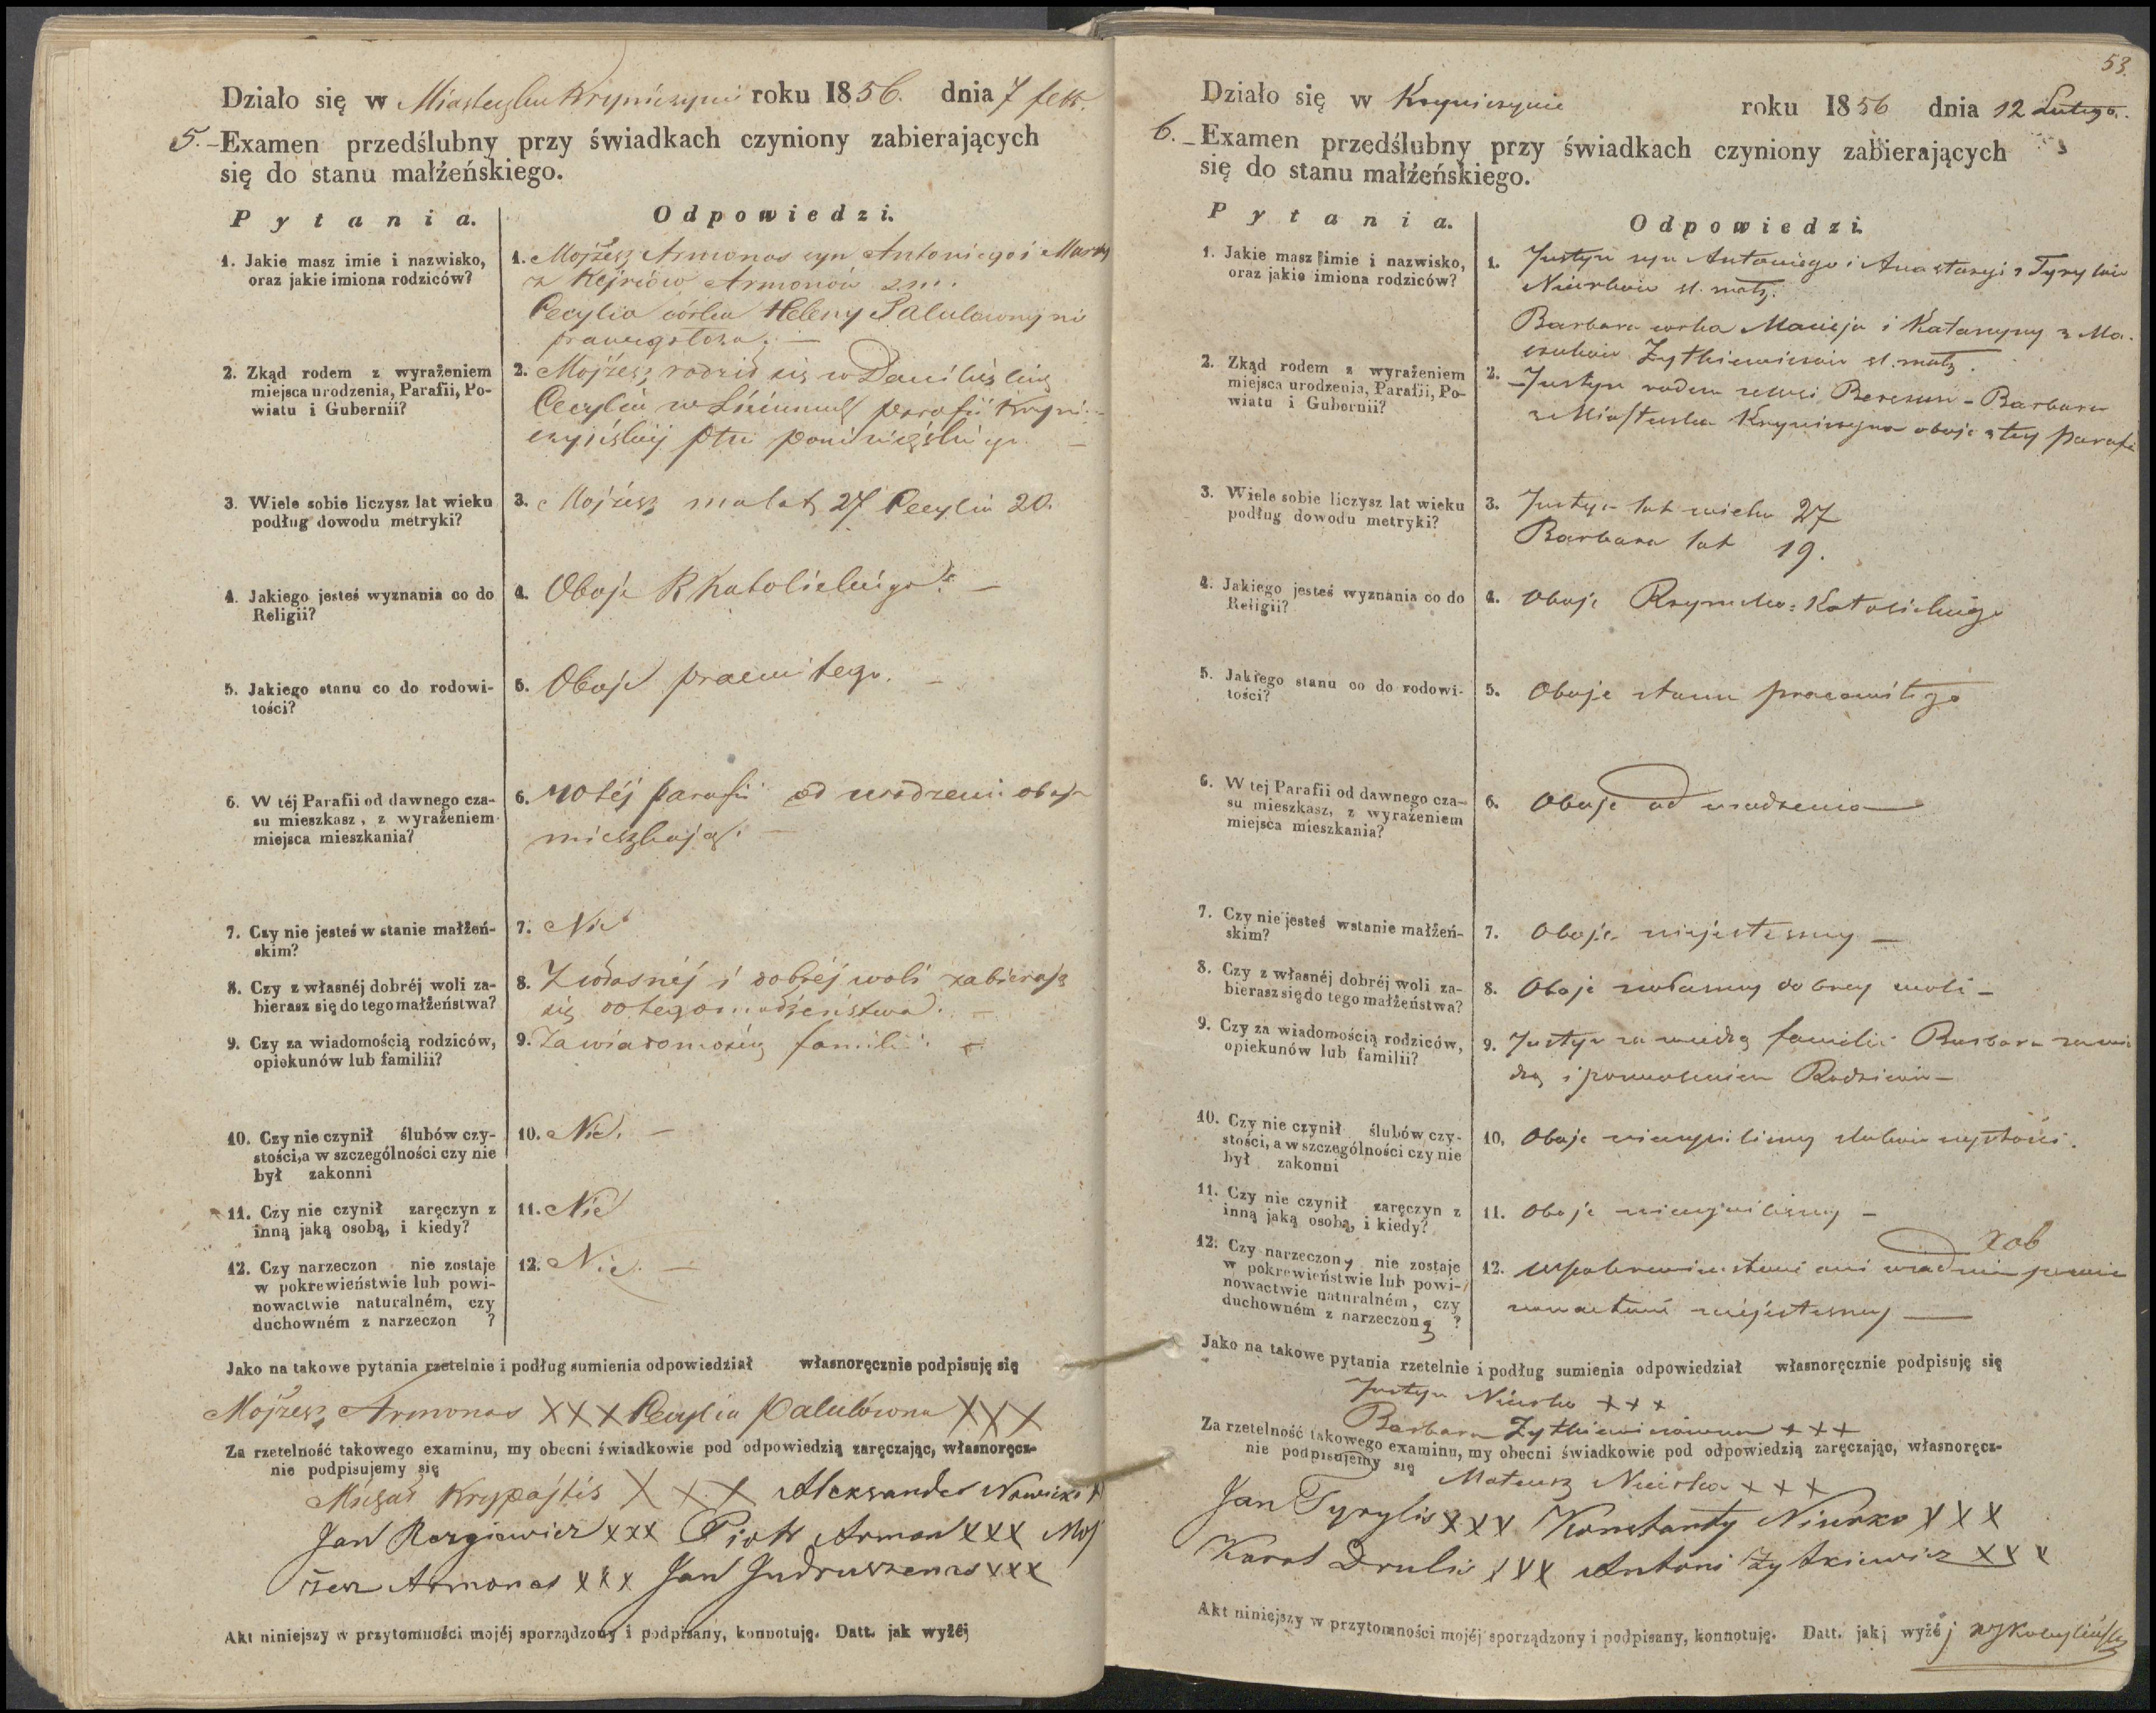 Działo się w Miasteczku Kryniczynie roku 1856. dnia 7 febr.
5. Examen przedślubny przy świadkach czyniony zabierających
się do stanu małżeńskiego.
Pytania.
Odpowiedzi.
1. Jakie masz imie i nazwisko,
oraz jakie imiona rodziców?
1. Mojżesz Armonas syn Antoniego i Marty
z Armonów
Cecylia córka Heleny Palulowny nie
2. Zkąd rodem z wyrażeniem
miejsca urodzenia, Parafii, Po-
wiatu i Gubernii?
2. Mojżesz rodził się w
Cecylia w parafii Kryni-
czyńskiej ptu poniewiezkiego. —
3. Wiele sobie liczysz lat wieku
podług dowodu metryki?
3. Mojżesz ma lat 27 Cecylia 20.
4. Jakiego jesteś wyznania co do
Religii?
4. Oboje R Katolickiego. —
5. Jakiego stanu co do rodowi-
tości?
5. Oboje
6. W téj Parafii od dawnego cza-
su mieszkasz, z wyrażeniem
miejsca mieszkania?
6. W téj parafii od urodzenia oboje
mieszkają. —
7. Czy nie jesteś w stanie małżeń-
skim?
7. Nie
8. Czy z własnéj dobréj woli za-
bierasz się do tego małżeństwa?
8. Z własnéj i dobréj woli zabierają
się do tego małżeństwa. —
9. Czy za wiadomością rodziców,
opiekunów lub familii?
9. Za wiadomością familii.
10. Czy nie czynił ślubów czy-
stości, a w szczególności czy nie
był zakonni
10. Nie. —
11. Czy nie czynił zaręczyn z
inną jaką osobą, i kiedy?
11. Nie
12. Czy narzeczon nie zostaje
w pokrewieństwie lub powi-
nowactwie naturalném, czy
duchowném z narzeczon ?
12. Nie. —
Jako na takowe pytania rzetelnie i podług sumienia odpowiedział własnoręcznie podpisuję się
Mojżesz Armonas XXX Cecylia Palulówna XXX
Za rzetelność takowego examinu, my obecni świadkowie pod odpowiedzią zaręczając, własnoręcz-
nie podpisujemy się
Krypajtis X X X Aleksander Nawicki X
Jan Rergiewicz XXX Piotr Arman XXX Moj
żesz Armonas XXX Jan Judruszenas XXX
Akt niniejszy w przytomności mojéj sporządzony i podpisany, konnotuję. Datt. jak wyżéj
53.
Działo się w Kryniczynie roku 1856 dnia 12 Lutego.
6. Examen przedślubny przy świadkach czyniony zabierających
się do stanu małżeńskiego.
Pytania.
Odpowiedzi.
1. Jakie masz imie i nazwisko,
oraz jakie imiona rodziców?
1. Justyn syn Antoniego i Anastazyi z Tyrylów
Niurków sl. małż.
Barbara corka Macieja i Katarzyny z Ma-
Zytkiewiczów sl. małż.
2. Zkąd rodem z wyrażeniem
miejsca urodzenia, Parafii, Po-
wiatu i Gubernii?
2. Justyn rodem ze wsi - Barbara
z Miasteczka Kryniczyna oboje z tey parafii
3. Wiele sobie liczysz lat wieku
podług dowodu metryki?
3. Justyn lat wieku 27
Barbara lat 19.
4. Jakiego jesteś wyznania co do
Religii?
4. Oboje Rzymsko-Katolickiego
5. Jakiego stanu co do rodowi-
tości?
5. Oboje stanu pracowitego
6. W tej Parafii od dawnego cza-
su mieszkasz, z wyrażeniem
miejsca mieszkania?
6. Oboje od urodzenia
7. Czy nie jesteś wstanie małżeń-
skim?
7. Oboje niejestesmy —
8. Czy z własnéj dobréj woli za-
bierasz się do tego małżeństwa?
8. Oboje zwłasney dobrey woli —
9. Czy za wiadomością rodziców,
opiekunów lub familii?
9. Justyn za wiedzą familii Barbara za wie
dzą i pozwoleniem Rodziców —
10. Czy nie czynił ślubów czy-
stości, a w szczególności czy nie
był zakonni
10. Oboje nieczynilismy slubow czystości.
11. Czy nie czynił zaręczyn z
inną jaką osobą, i kiedy?
11. Oboje nieczynilismy —
12. Czy narzeczony nie zostaje
w pokrewieństwie lub powi-
nowactwie naturalném, czy
duchowném z narzeczoną ?
12. Wpokrewienstwie ani w żadnem powi
nowactwie niejestesmy —
Jako na takowe pytania rzetelnie i podług sumienia odpowiedział własnoręcznie podpisuję się
Justyn Niurko + + +
Barbara Zytkiewiczowna + + +
Za rzetelność takowego examinu, my obecni świadkowie pod odpowiedzią zaręczając, własnoręcz-
nie podpisujemy się Mateusz Niurko + + +
Jan Tyrylis XXX Konstanty Niurko XXX
Karol Drulis XXX Antoni Zytkiewicz XXX
Akt niniejszy w przytomności mojéj sporządzony i podpisany, konnotuję. Datt. jak wyżéj